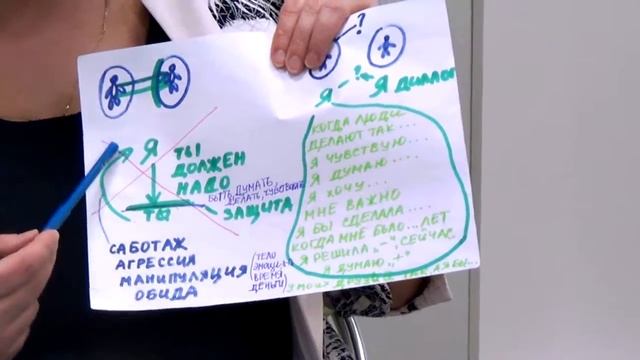 ?
Я - ? Я ДИАЛОГ
Я
ТЫ
ДОЛЖЕН
НАДО
БЫТЬ, ДУМАТЬ,
ДЕЛАТЬ, ЧУВСТВОВАТЬ
ТЫ
ЗАЩИТА
САБОТАЖ
АГРЕССИЯ
МАНИПУЛЯЦИЯ
ОБИДА
ТЕЛО
ЭМОЦИИ
ВРЕМЯ
ДЕНЬГИ
КОГДА ЛЮДИ
ДЕЛАЮТ ТАК...
Я ЧУВСТВУЮ....
Я ДУМАЮ....
Я ХОЧУ....
МНЕ ВАЖНО
Я БЫ СДЕЛАЛА....
КОГДА МНЕ БЫЛО... ЛЕТ
Я РЕШИЛА „-", СЕЙЧАС
Я ДУМАЮ „+"
У МОИХ ДРУЗЕЙ ТАК, А Я БЫ...